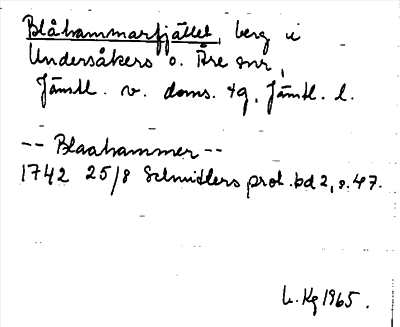 Blåhammarfjället, berg i
Undersåkers o. Åre snr,
Jämtl. v. doms. tg, Jämtl. l.
-- Blaahammer --
1742 25/8 Schnitlers prot. bd 2, s. 47.
L. Kg 1965.